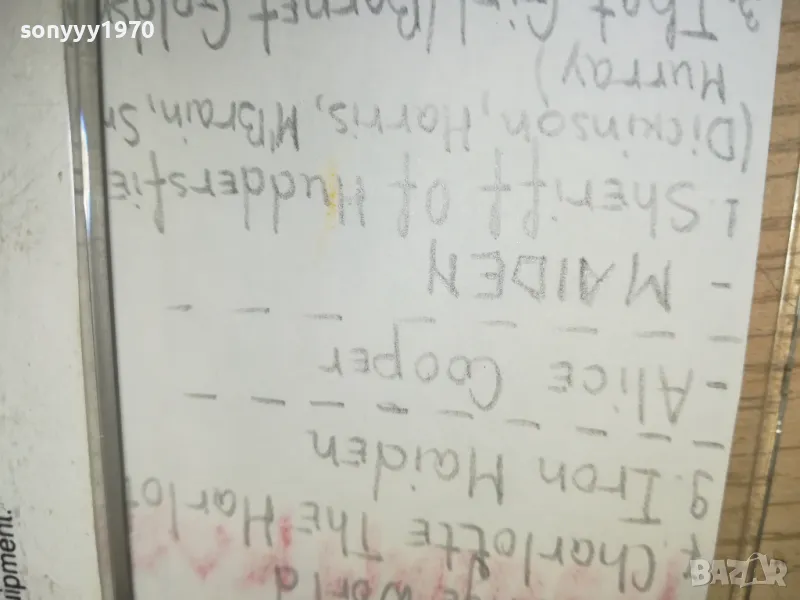 World
Charlotte The Harlot
9. Iron Maiden
- Alice Cooper
- MAIDEN
1. Sheriff of Huddersfie
(Dickinson, Harris, M'Brain, Sm
Murray)
3. That Girl (Barnet Golds
uipment.
sonyyy1970
BAZAR